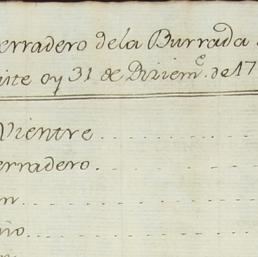 erradero dela Burrada
oy 31 de Diziem.e de 17
Vientre
erradero.